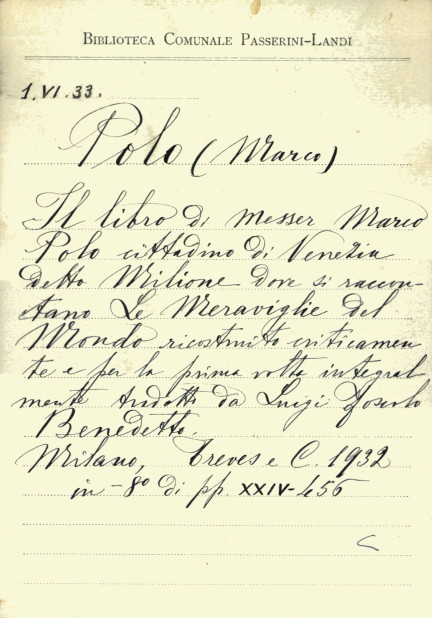 BIBLIOTECA COMUNALE PASSERINI-LANDI
1.VI.33.
Polo (Marco)
Il libro di messer Marco
Polo cittadino di Venezia
detto Milione dove si raccon-
tano Le Meraviglie del
Mondo ricostruito criticamen
te e per la prima volta integral
mente tradotto da Luigi Foscolo
Benedetto.
Milano, Treves e C. 1932
in-8º di pp. XXIV-456